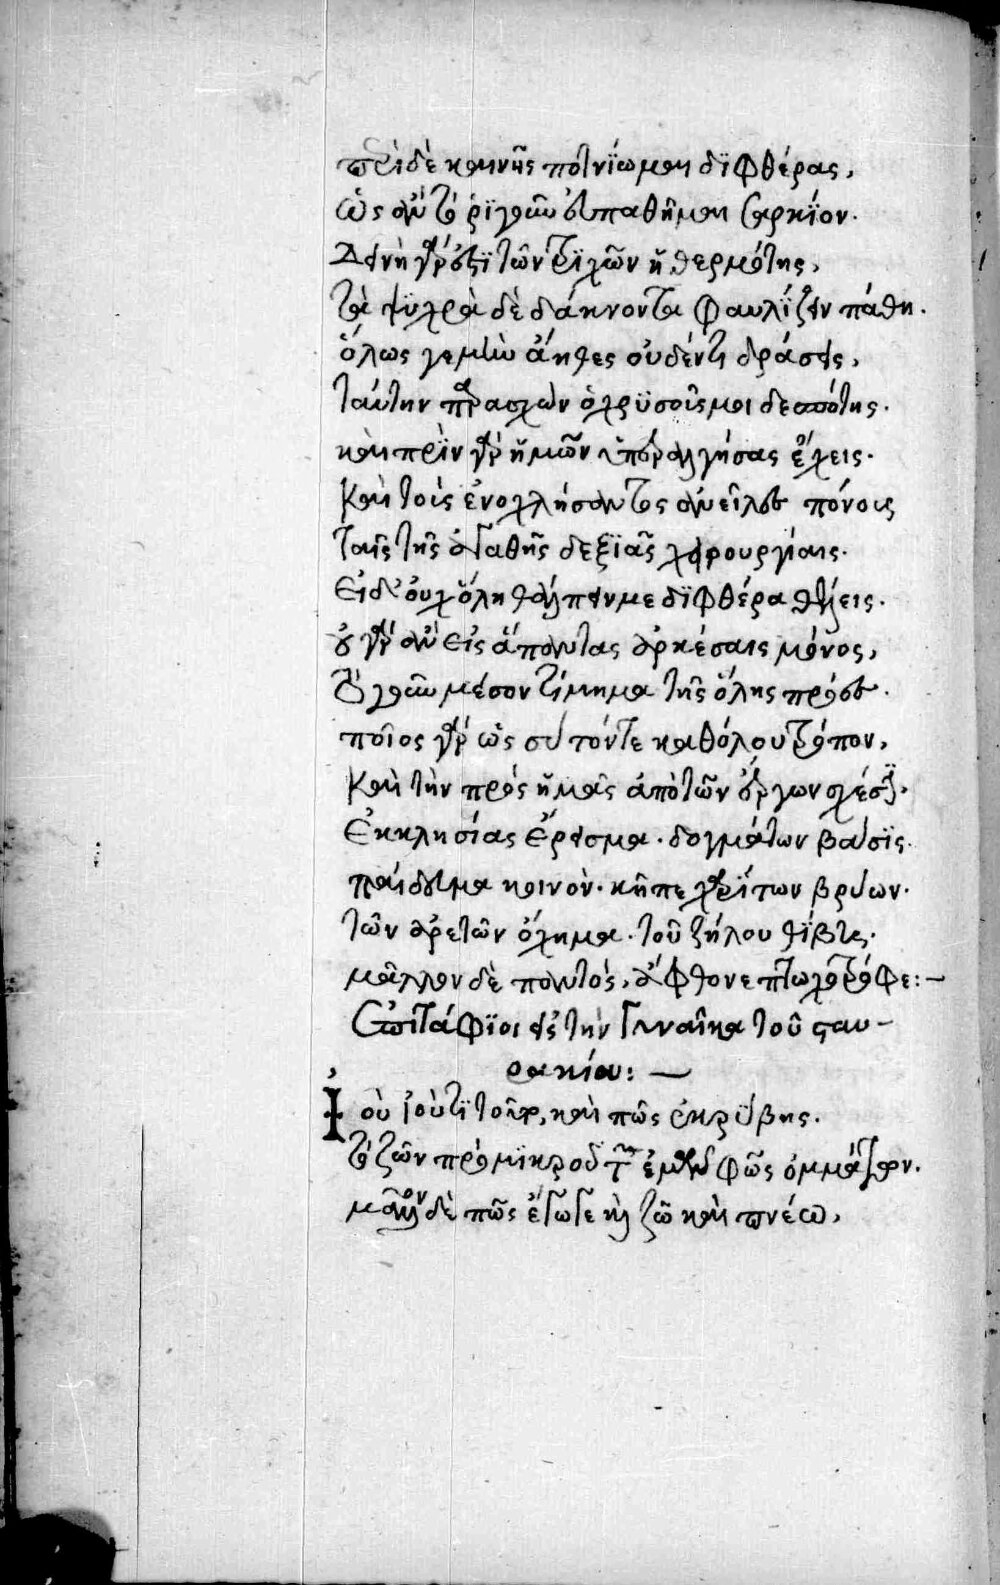 περὶ δὲ καινῆς ποτνϊῶμαι δϊφθέρας,
ὡς ἂν τὸ ῥϊγοῦν εὐπαθῆ μοι σαρκίον.
δεινὴ γὰρ ἐστὶ τῶν τρϊχῶν ἡ θερμότης,
τὰ ψυχρὰ δὲ δάκνοντα φαυλίζειν πάθη.
ὅλως γεμὴν ἄηθες οὐδέν τι δράσεις,
ταύτην παρασχὼν ὁ χρϋσοῦς μοι δεσπότης.
καὶ πρὶν γὰρ ἡμῶν ὑπεραλγήσας ἔχεις.
καὶ τοὺς ἐνοχλήσαντας ἀνεῖλες πόνους
ταῖς τῆς ἀγαθῆς δεξϊᾶς χειρουργίαις.
εἰ δ' οὐχ ὅλη θάλπειν με δϊφθέρα θέλεις.
οὐ γὰρ ἂν εἰς ἅπαντας ἀρκέσαις μόνος,
τὸ γοῦν μέσον τίμημα τῆς ὅλης πρόες.
ποῖος γὰρ ὡς σὺ τόν τε καθόλου τρόπον,
καὶ τὴν πρὸς ἡμᾶς ἀπὸ τῶν ἔργων σχέσιν.
ἐκκλησίας ἔρεισμα. δογμάτων βάσϊς.
παίδευμα κοινόν. κῆπε χαρίτων βρύων.
τῶν ἀρετῶν ὄχημα. τοῦ ζήλου θίβις.
μᾶλλον δὲ παντός, ἄφθονε πτωχοτρόφε:—
Ἐπιτάφϊοι εἰς τὴν γυναῖκα τοῦ σταυ-
ρακίου:—
Ἰοὺ ἰοὺ τί τοῦτο, καὶ πῶς ἐκρύβης.
τὸ ζῶν πρὸ μϊκροῦ τῶν ἐμῶν φῶς ὀμμάτων.
μᾶλλον δὲ πῶς ἔγωγε καὶ ζῶ καὶ πνέω,